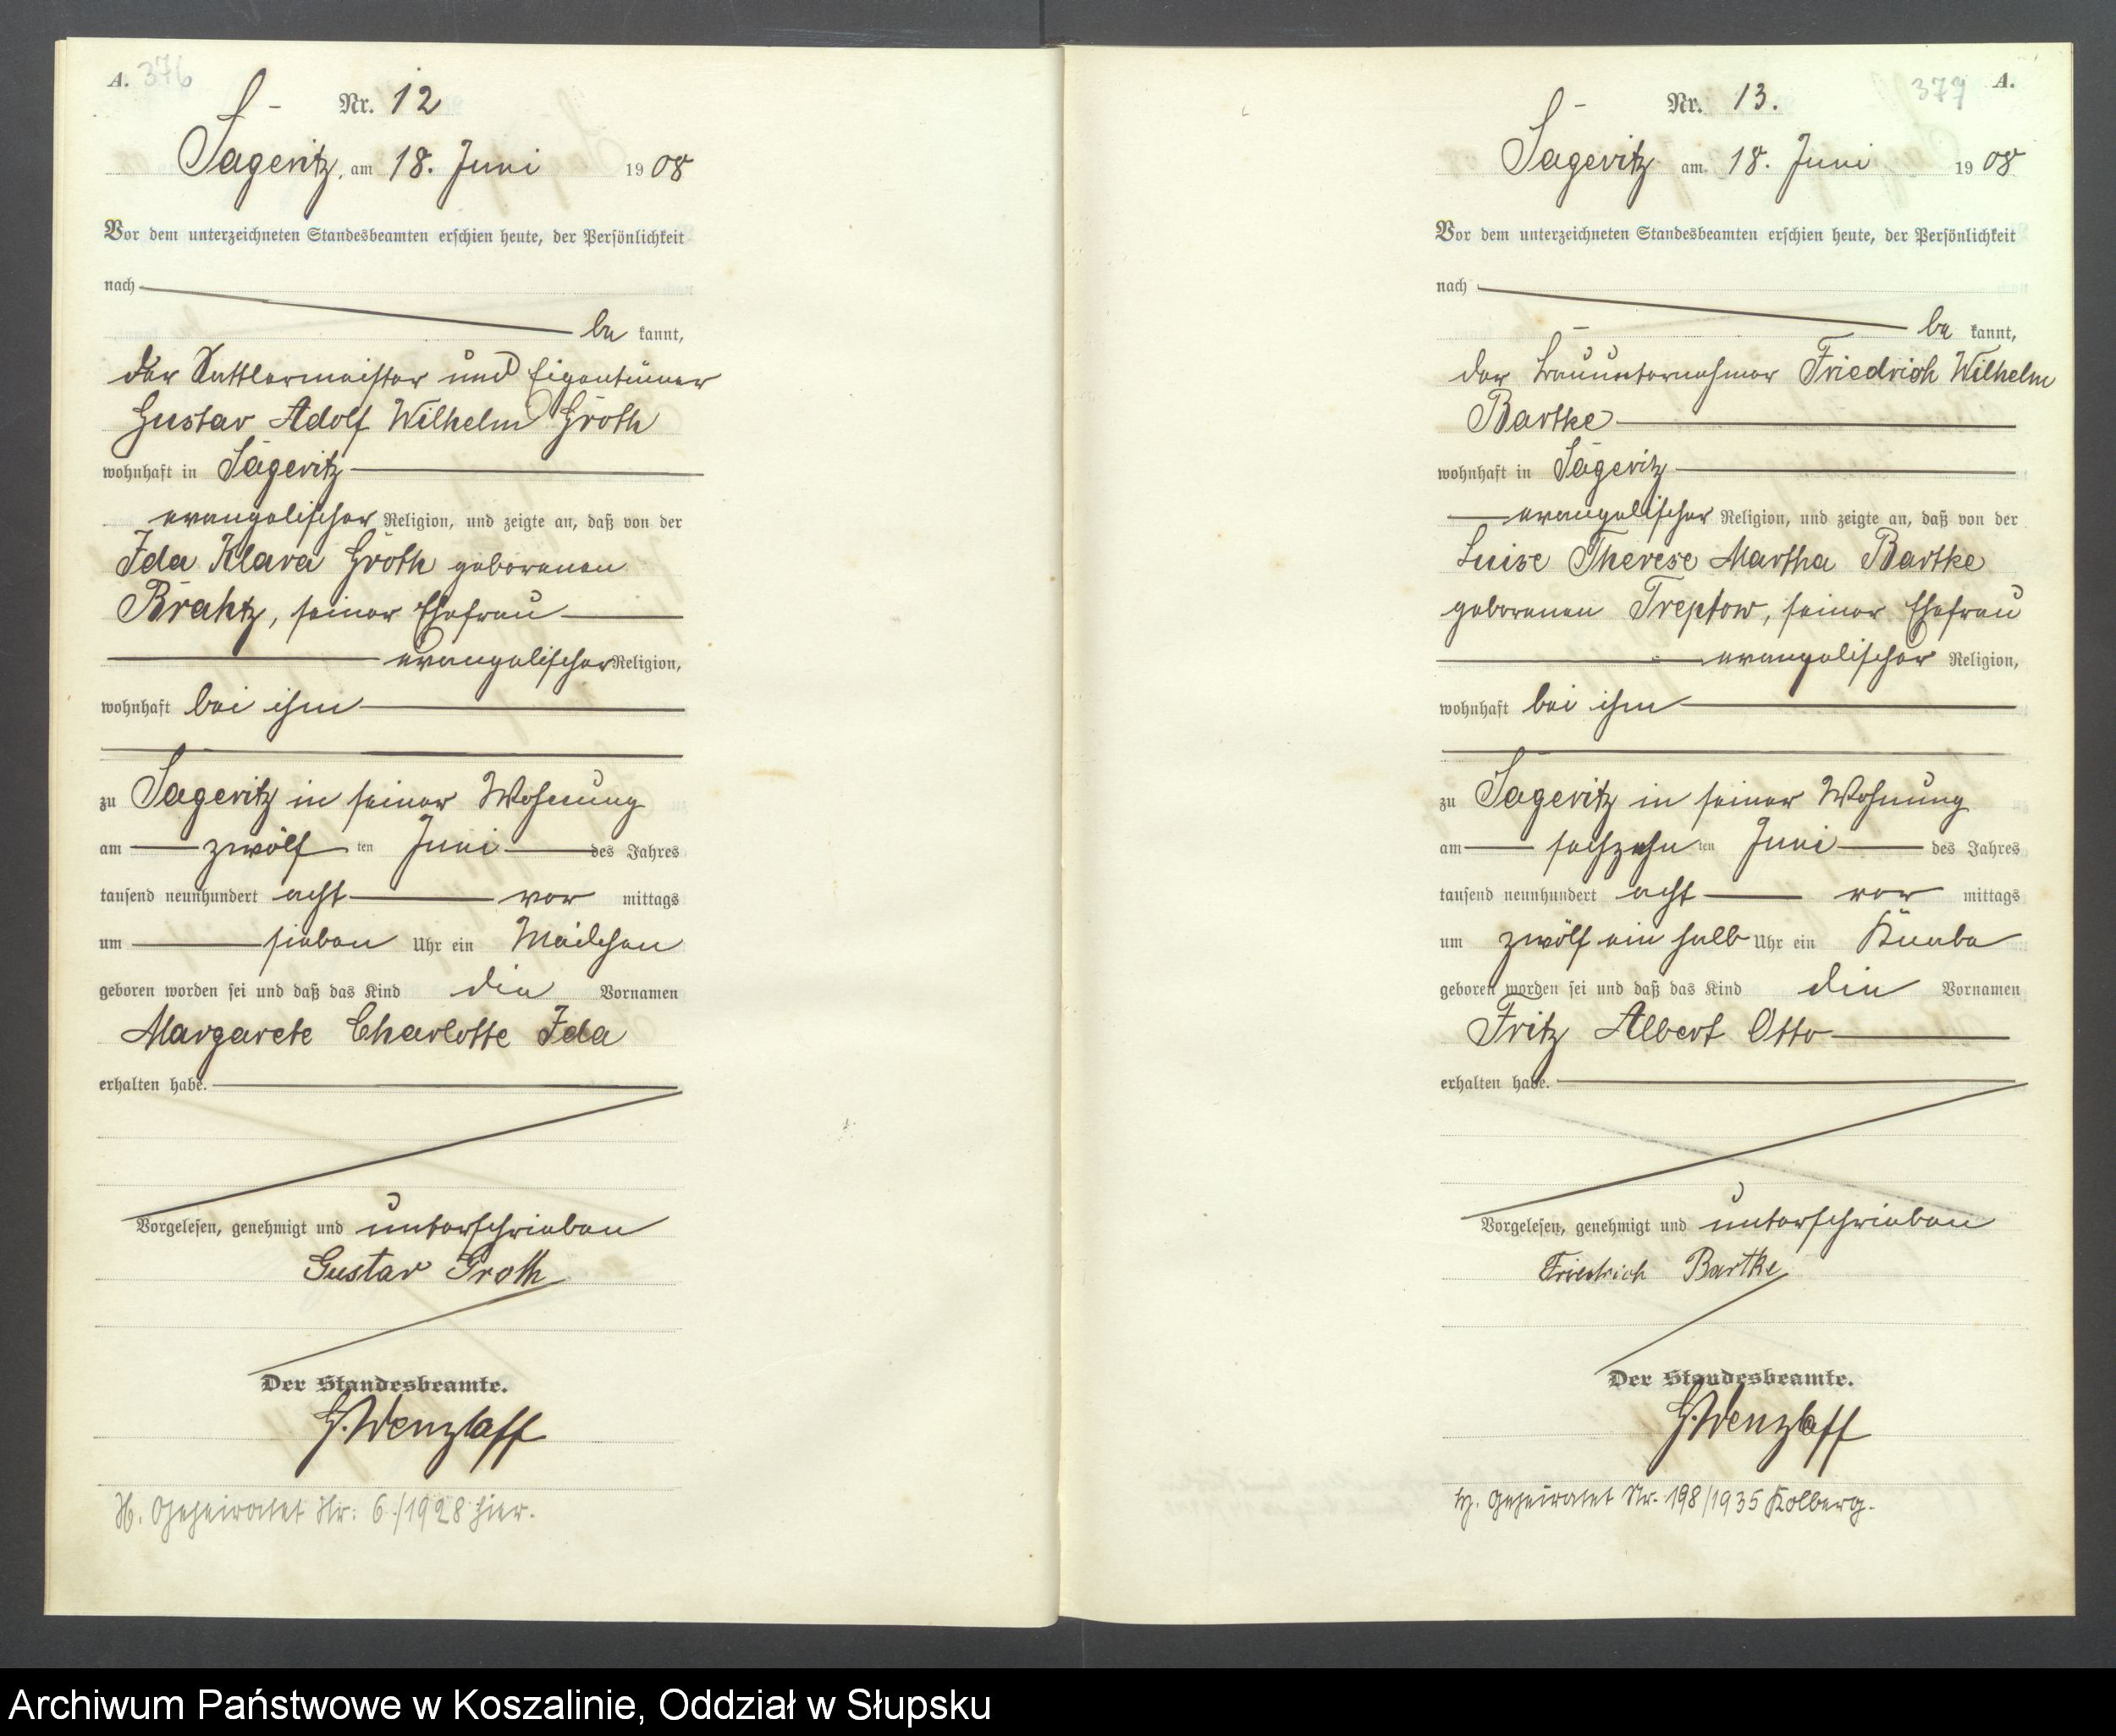 A. 376
Nr. 12
Sageritz, am 18. Juni 1908
Vor dem unterzeichneten Standesbeamten erschien heute, der Persönlichkeit
nach
be kannt,
der Sattlermeister und Eigentümer
Gustav Adolf Wilhelm Groth
wohnhaft in Sageritz
evangelischer Religion, und zeigte an, daß von der
Ida Klara Groth geborenen
Brahtz, seiner Ehefrau
evangelischer Religion,
wohnhaft bei ihm
zu Sageritz in seiner Wohnung
am zwölf ten Juni des Jahres
tausend neunhundert acht vor mittags
um sieben Uhr ein Mädchen
geboren worden sei und daß das Kind die Vornamen
Margarete Charlotte Ida
erhalten habe.
Vorgelesen, genehmigt und unterschrieben
Gustav Groth
Der Standesbeamte.
G. Wenzlaff
H. Geheiratet Nr: 6/1928 hier.
377 A.
Nr. 13.
Sageritz am 18. Juni 1908
Vor dem unterzeichneten Standesbeamten erschien heute, der Persönlichkeit
nach
be kannt,
der Bauunternehmer Friedrich Wilhelm
Bartke
wohnhaft in Sageritz
evangelischer Religion, und zeigte an, daß von der
Luise Therese Martha Bartke
geborenen Treptow, seiner Ehefrau
evangelischer Religion,
wohnhaft bei ihm
zu Sageritz in seiner Wohnung
am sechzehn ten Juni des Jahres
tausend neunhundert acht vor mittags
um zwölf ein halb Uhr ein Knabe
geboren worden sei und daß das Kind die Vornamen
Fritz Albert Otto
erhalten habe.
Vorgelesen, genehmigt und unterschrieben
Friedrich Bartke
Der Standesbeamte.
G. Wenzlaff
H. Geheiratet Nr. 198/1935 Kolberg.
Archiwum Państwowe w Koszalinie, Oddział w Słupsku